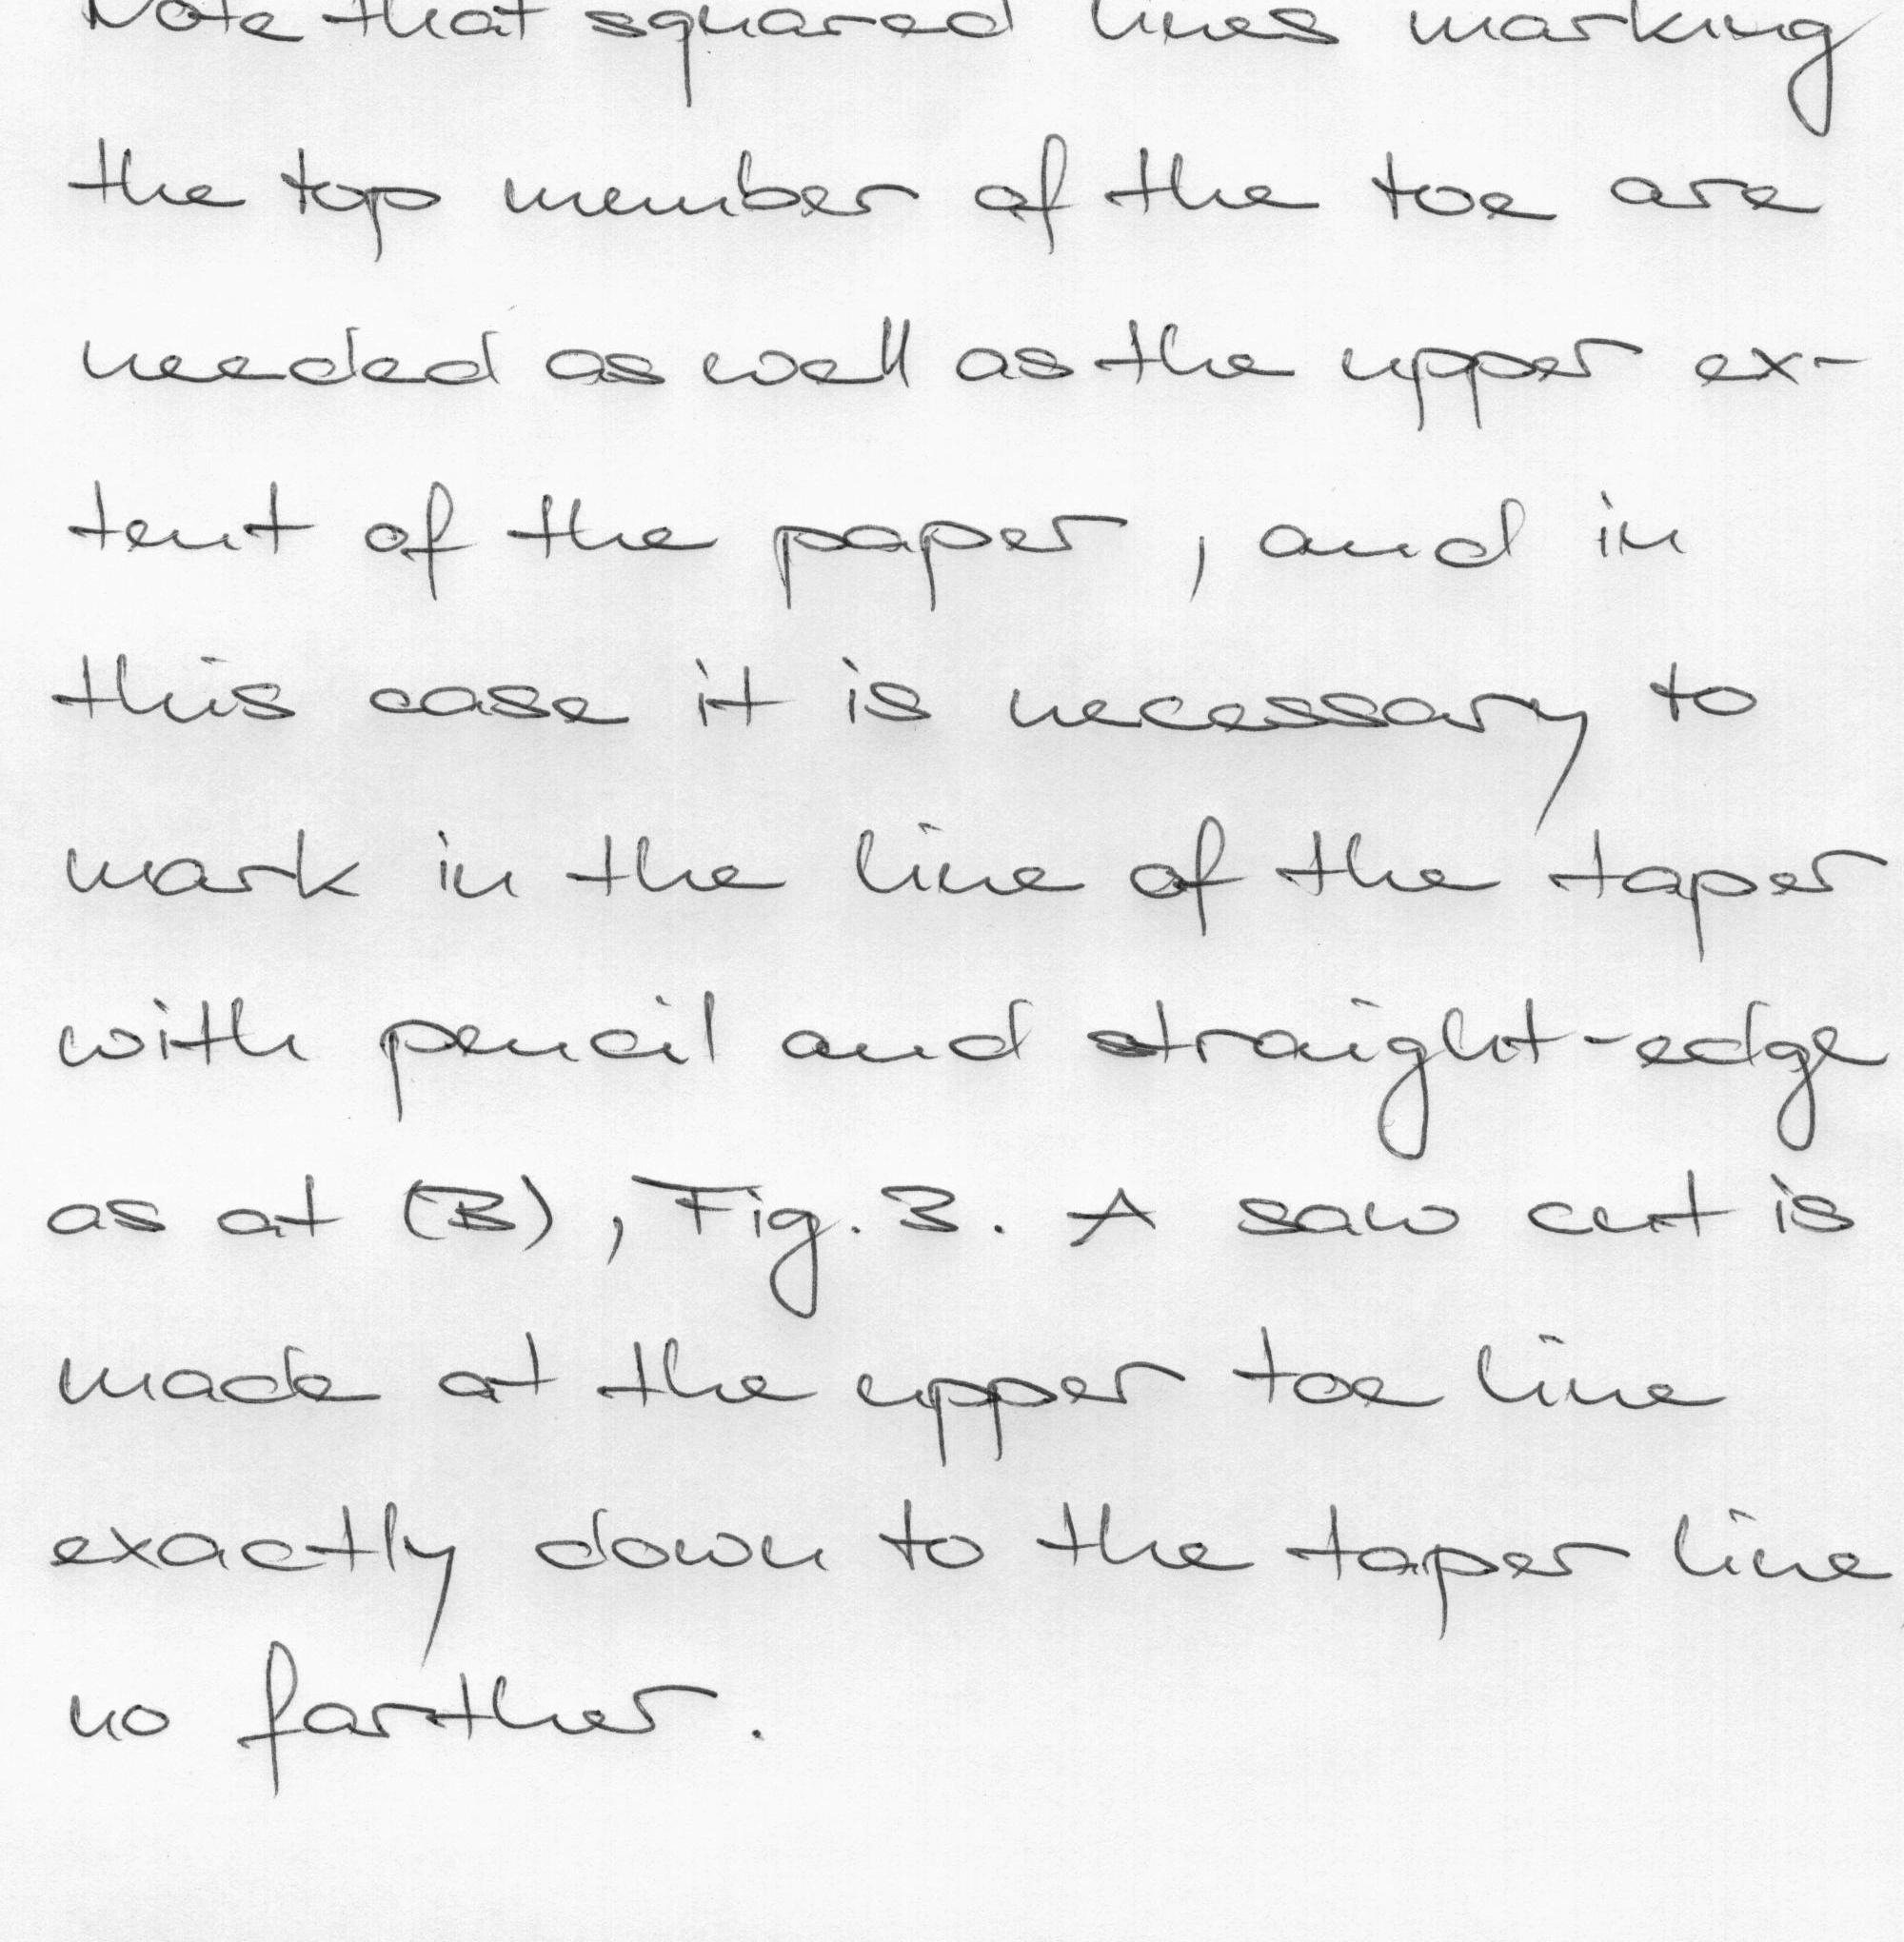 Note that squared lines marking
the top member of the toe are
needed as well as the upper ex-
tent of the paper, and in
this case it is necessary to
mark in the line of the taper
with pencil and straight-edge
as at (B), Fig. 3. A saw cut is
made at the upper toe line
exactly down to the taper line,
no farther.